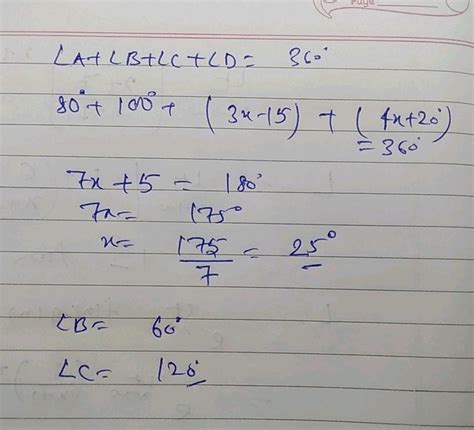 Page
∠A+∠B+∠C+∠D= 360°
80°+100°+ (3x-15) + (4x+20°)
= 360°
7x+5 = 180°
7x= 175°
x= 175/7 = 25°
∠B= 60°
∠C= 120°